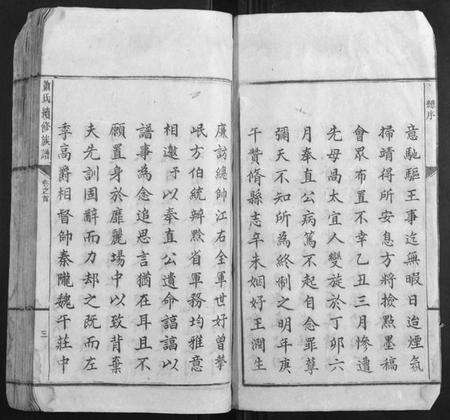 總序
意馳驅王事迄無暇日迨煙氣
掃靖得所安息方將撿點墨稿
會眾布置不幸乙丑三月慘遭
先母曷太宜人變旋於丁卯六
月奉直公病篤不起自罪
彌天不知所為終制之明年庚
午贊脩縣志年朱姻好王澗生
廉訪總帥江右全軍世好曾摯
岷方伯統辦黔省軍務均雅意
相邀于以奉直公遺命諄諄以
譜事為念追思言猶在耳且不
願置身於靡麗場中以致背棄
夫先訓固辭而力却之既而左
季高爵相督帥秦隴魏午莊中
蕭氏續修族譜
卷之首
三